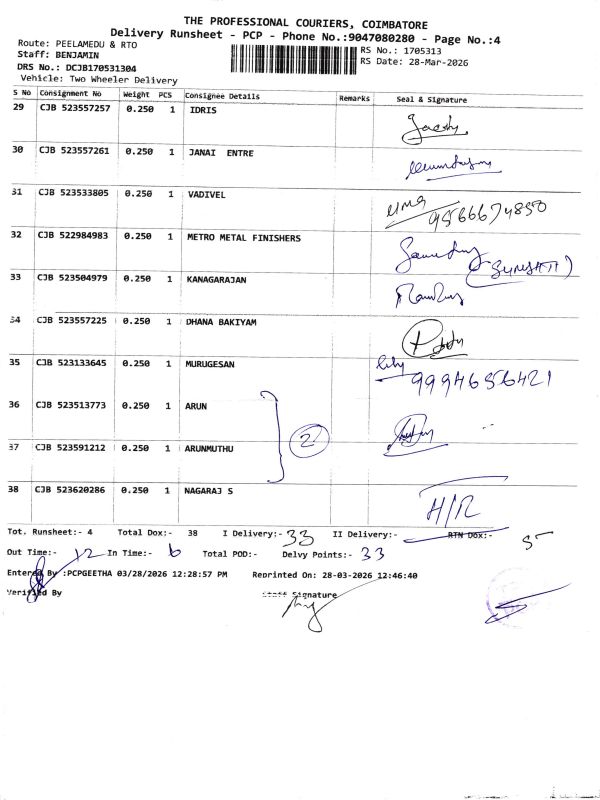 THE PROFESSIONAL COURIERS, COIMBATORE
Delivery Runsheet - PCP - Phone No.:9047080280 - Page No.:4
Route: PEELAMEDU & RTO
RS No.: 1705313
Staff: BENJAMIN
RS Date: 28-Mar-2026
DRS No.: DCJB170531304
Vehicle: Two Wheeler Delivery
S No Consignment No Weight PCS Consignee Details Remarks Seal & Signature
29 CJB 523557257 0.250 1 IDRIS
30 CJB 523557261 0.250 1 JANAI ENTRE
31 CJB 523533805 0.250 1 VADIVEL
uma 9566674850
32 CJB 522984983 0.250 1 METRO METAL FINISHERS
(SURESH)
33 CJB 523504979 0.250 1 KANAGARAJAN
34 CJB 523557225 0.250 1 DHANA BAKIYAM
35 CJB 523133645 0.250 1 MURUGESAN
9994656421
36 CJB 523513773 0.250 1 ARUN
2
37 CJB 523591212 0.250 1 ARUNMUTHU
38 CJB 523620286 0.250 1 NAGARAJ S
H/R
Tot. Runsheet:- 4 Total Dox:- 38 I Delivery:- 33 II Delivery:- RTN Dox:- 5
Out Time:- 12 In Time:- 6 Total POD:- Delvy Points:- 33
Entered By :PCPGEETHA 03/28/2026 12:28:57 PM Reprinted On: 28-03-2026 12:46:40
Verified By Staff Signature